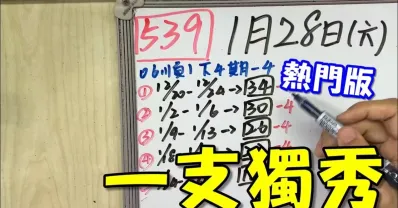 539 1月28日(六)
06順1下4期-4
熱門版
① 12/20-12/24→34-4
② 1/2-1/6→30-4
③ 1/9-1/13→26-4
④ 1/18
一支獨秀